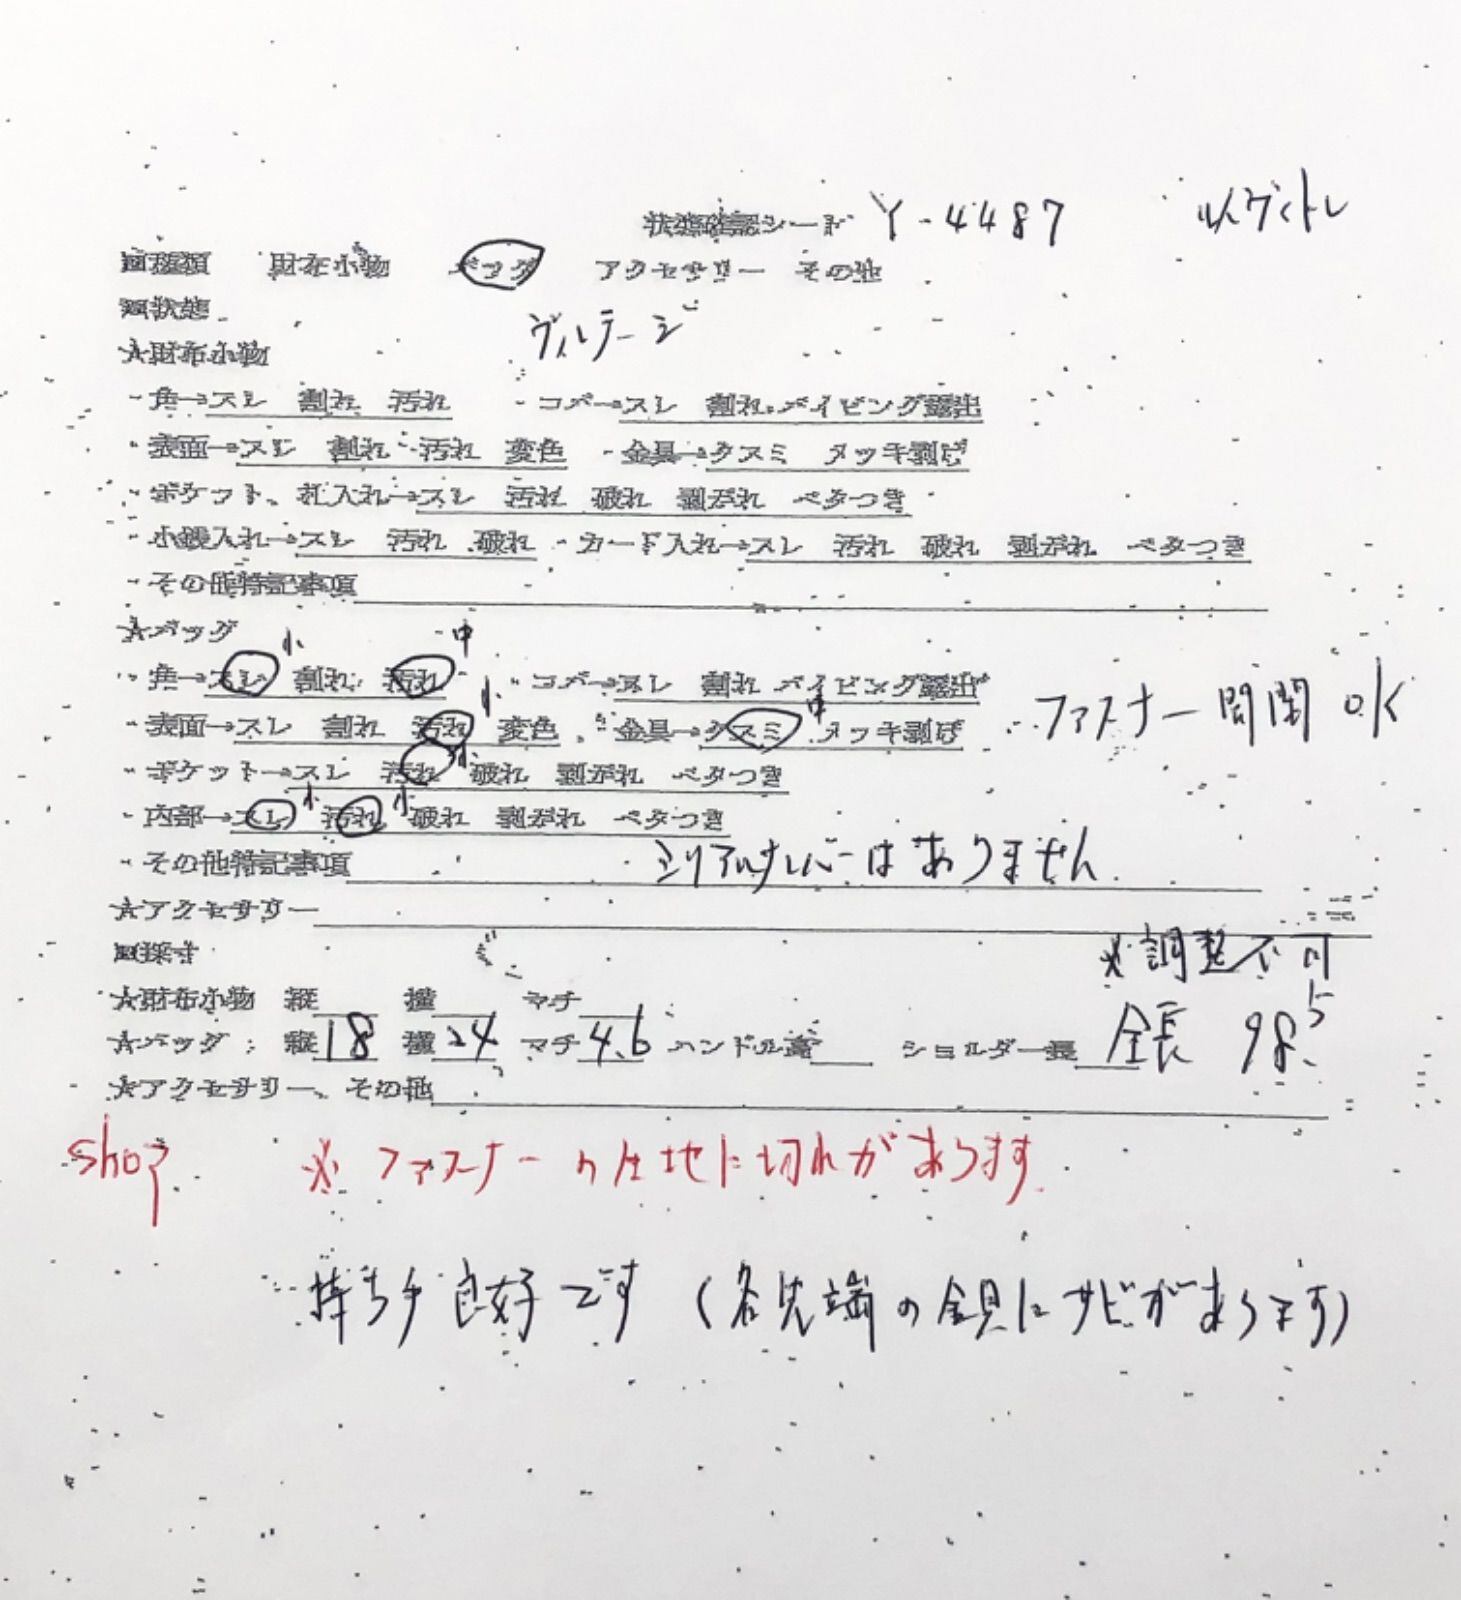 状態確認シート Y-4487 ルイヴィトン
■種類 財布小物 バッグ アクセサリー その他
■状態
ヴィンテージ
☆財布小物
・角→スレ 割れ 汚れ ・コバ→スレ 割れ パイピング露出
・表面→スレ 割れ 汚れ 変色 ・金具→クスミ メッキ剥げ
・ポケット、札入れ→スレ 汚れ 破れ 剥がれ ベタつき
・小銭入れ→スレ 汚れ 破れ ・カード入れ→スレ 汚れ 破れ 剥がれ ベタつき
・その他特記事項
☆バッグ
・角→スレ小 割れ 汚れ中 ・コバ→スレ 割れ パイピング露出
・表面→スレ 割れ 汚れ小 変色 ・金具→クスミ中 メッキ剥げ ファスナー開閉 OK
・ポケット→スレ 汚れ小 破れ 剥がれ ベタつき
・内部→スレ小 汚れ小 破れ 剥がれ ベタつき
・その他特記事項 シリアルナンバーはありません
☆アクセサリー
■採寸 ※調整不可
☆財布小物 縦 横 マチ
☆バッグ 縦18 横24 マチ4.6 ハンドル高 ショルダー長 全長 98.5
☆アクセサリー、その他
shop ※ファスナーの生地に切れがあります
持ち手良好です(各先端の金具にサビがあります)